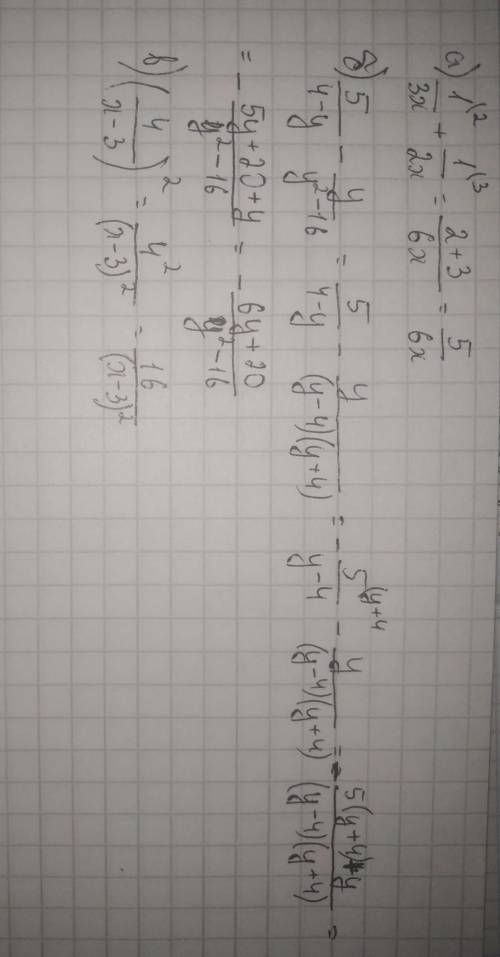 а) 1(2/3x + 1(3/2x = (2+3)/6x = 5/6x
б) 5/(4-y) - y/(y²-16) = 5/(4-y) - y/((y-4)(y+4)) = - 5(y+4/(y-4) - y/((y-4)(y+4)) = - (5(y+4)+y)/((y-4)(y+4)) =
= - (5y+20+y)/(y²-16) = - (6y+20)/(y²-16)
в) (4/(x-3))² = 4²/(x-3)² = 16/(x-3)²